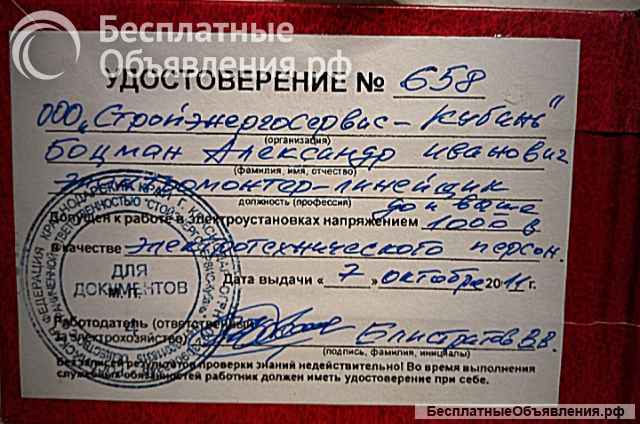 Бесплатные
Объявления.рф
УДОСТОВЕРЕНИЕ № 658
ООО „Стройэнергосервис-Кубань"
(организация)
Боцман Александр Иванович
(фамилия, имя, отчество)
Электромонтер-линейщик
должность (профессия)
Допущен к работе в электроустановках напряжением до и выше 1000 в
в качестве электротехнического персон.
ДЛЯ
ДОКУМЕНТОВ
М.П.
Дата выдачи « 7 » октября 2011 г.
Работодатель (ответственный
за электрохозяйство) Елистратов В.В.
(подпись, фамилия, инициалы)
Без записей результатов проверки знаний недействительно! Во время выполнения
служебных обязанностей работник должен иметь удостоверение при себе.
БесплатныеОбъявления.рф